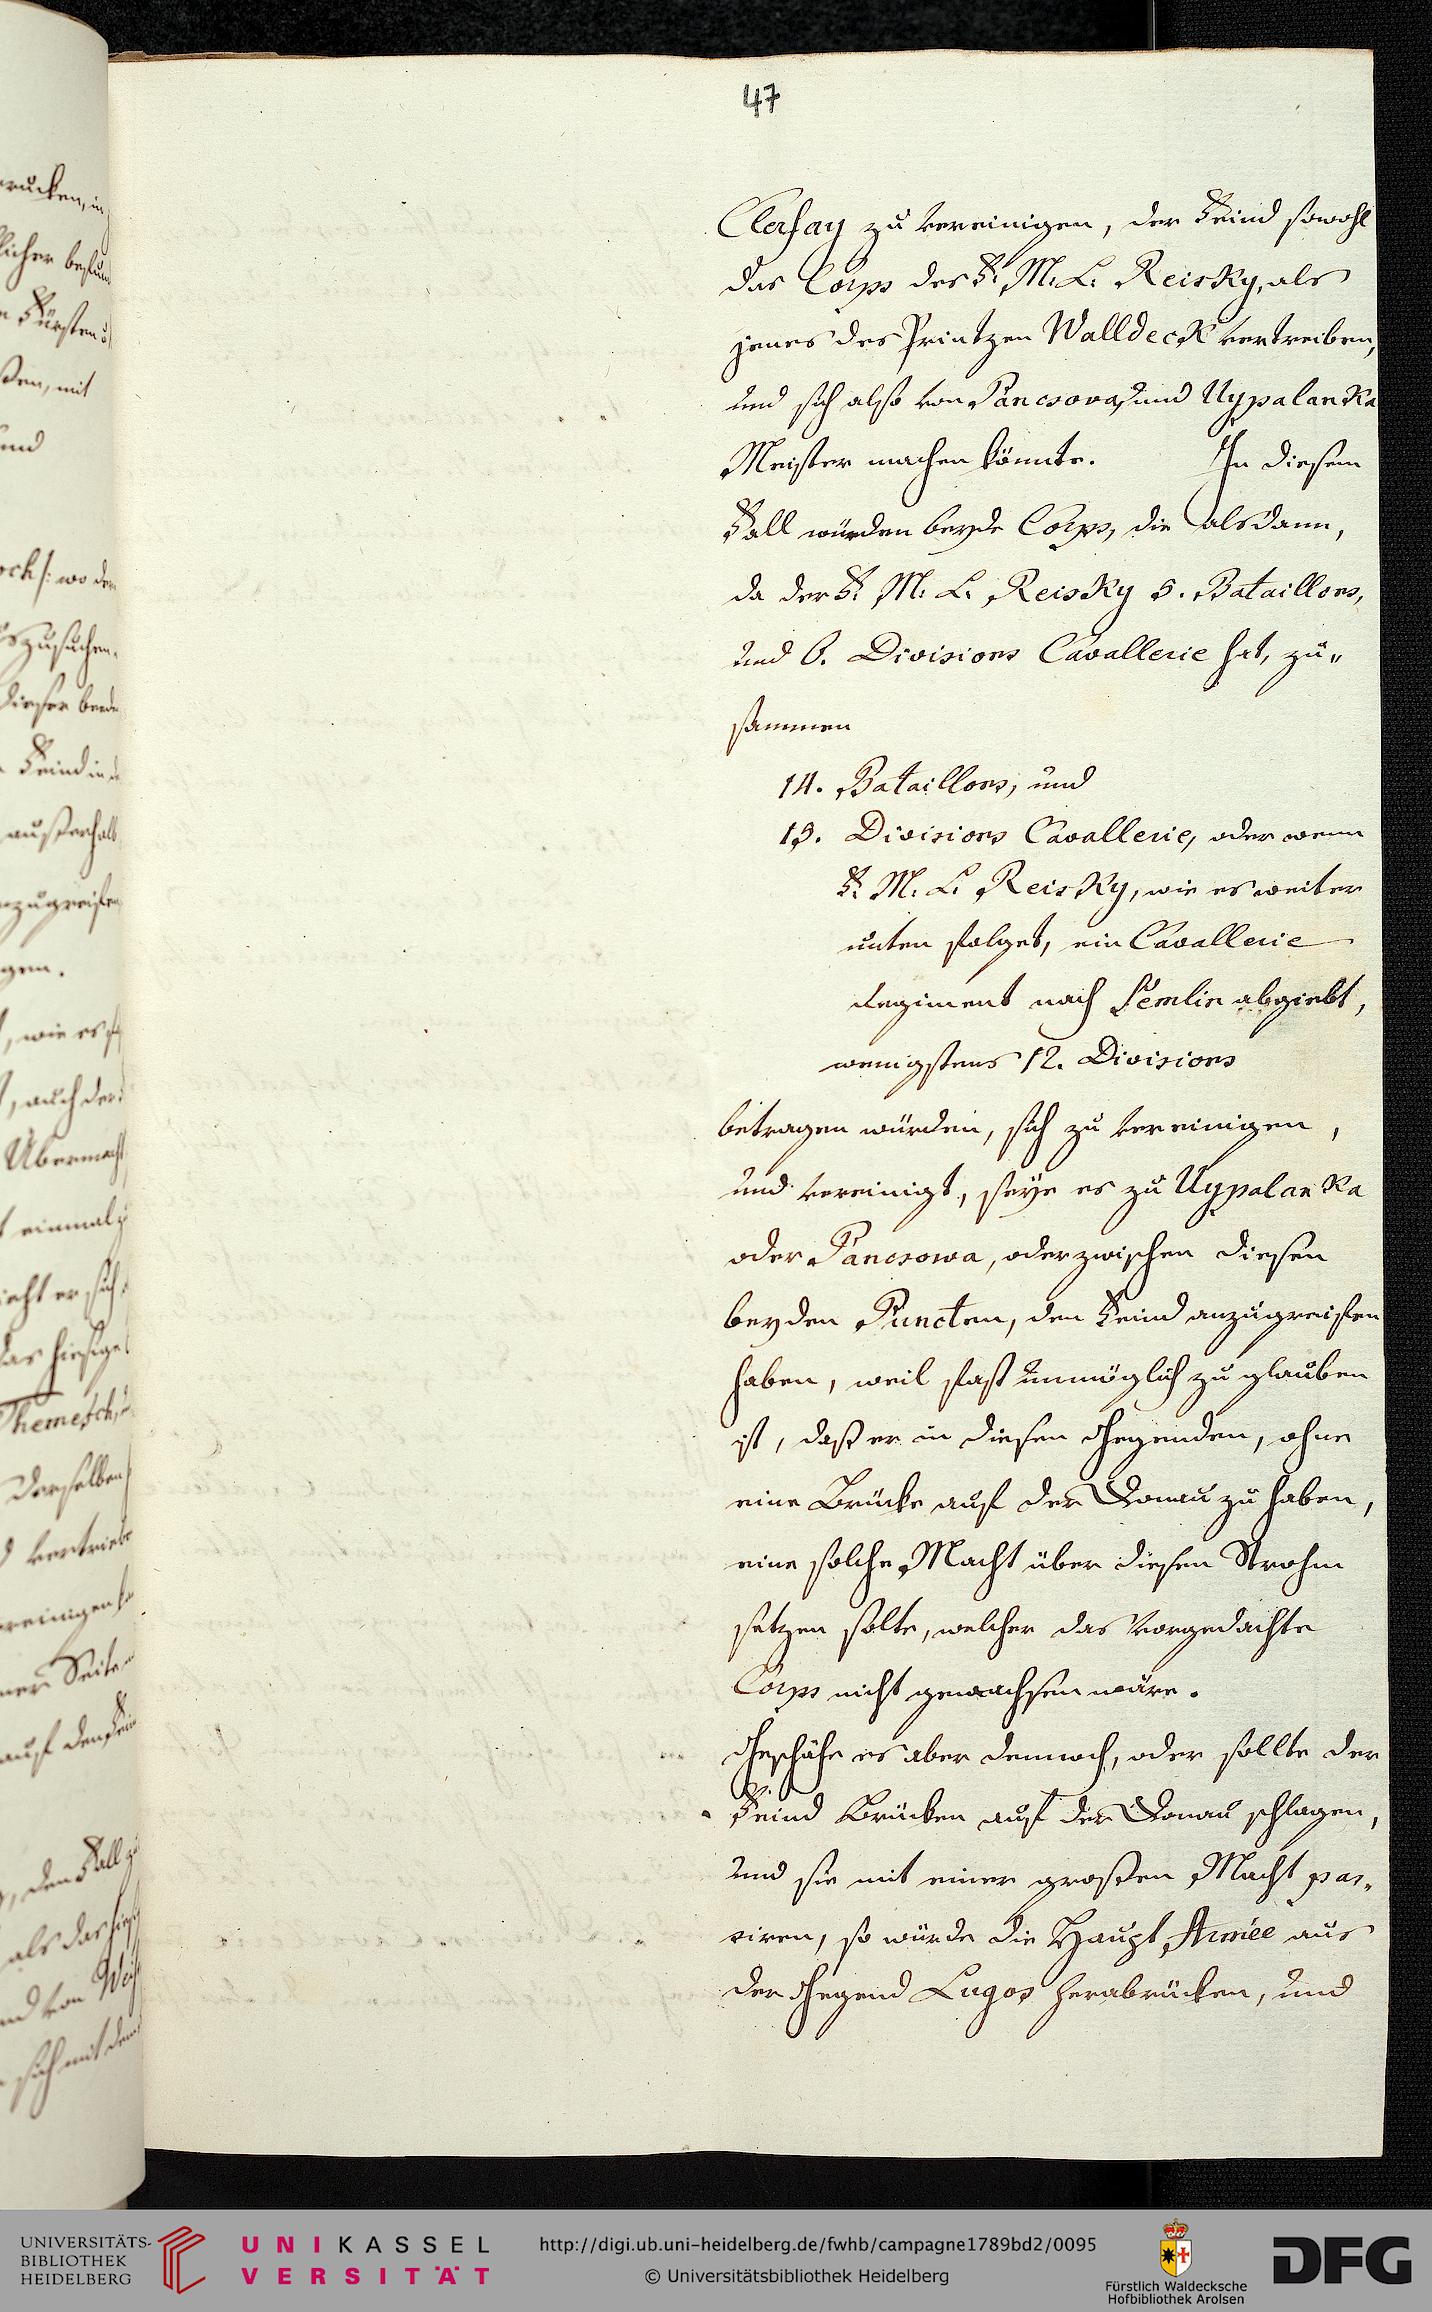 47
Clerfay zu vereinigen, der Feind sowohl
das Corps des F: M: L: Reisky, als
jenes des Printzen Walldeck vertreiben,
und sich also von Pancsova, und Uypalanka
Meister machen könnte. In diesem
Fall würden beyde Corps, die alsdann,
da der F: M: L: Reisky 5. Bataillons,
und 6. Divisions Cavallerie hat, zu„
sammen
14. Bataillons, und
15. Divisions Cavallerie, oder wenn
F: M: L: Reisky, wie es weiter
unten folget, ein Cavallerie
Regiment nach Semlin abgiebt,
wenigstens 12. Divisions
betragen würden, sich zu vereinigen,
und vereinigt, seye es zu Uypalanka
oder Pancsowa, oder zwischen diesen
beyden Puncten, den Feind anzugreifen
haben, weil fast unmöglich zu glauben
ist, daß er in diesen Gegenden, ohne
eine Brücke auf der Donau zu haben,
eine solche Macht über diesen Strohm
setzen solte, welcher das vorgedachte
Corps nicht gewachsen wäre.
Geschähe es aber dennoch, oder sollte der
Feind Brücken auf der Donau schlagen,
und sie mit einer großen Macht pas„
siren, so würde die Haupt Armée aus
der Gegend Lugos herabrücken, und
UNIVERSITÄTS-
BIBLIOTHEK
HEIDELBERG
UNIKASSEL
VERSITÄT
http://digi.ub.uni-heidelberg.de/fwhb/campagne1789bd2/0095
© Universitätsbibliothek Heidelberg
Fürstlich Waldecksche
Hofbibliothek Arolsen
DFG